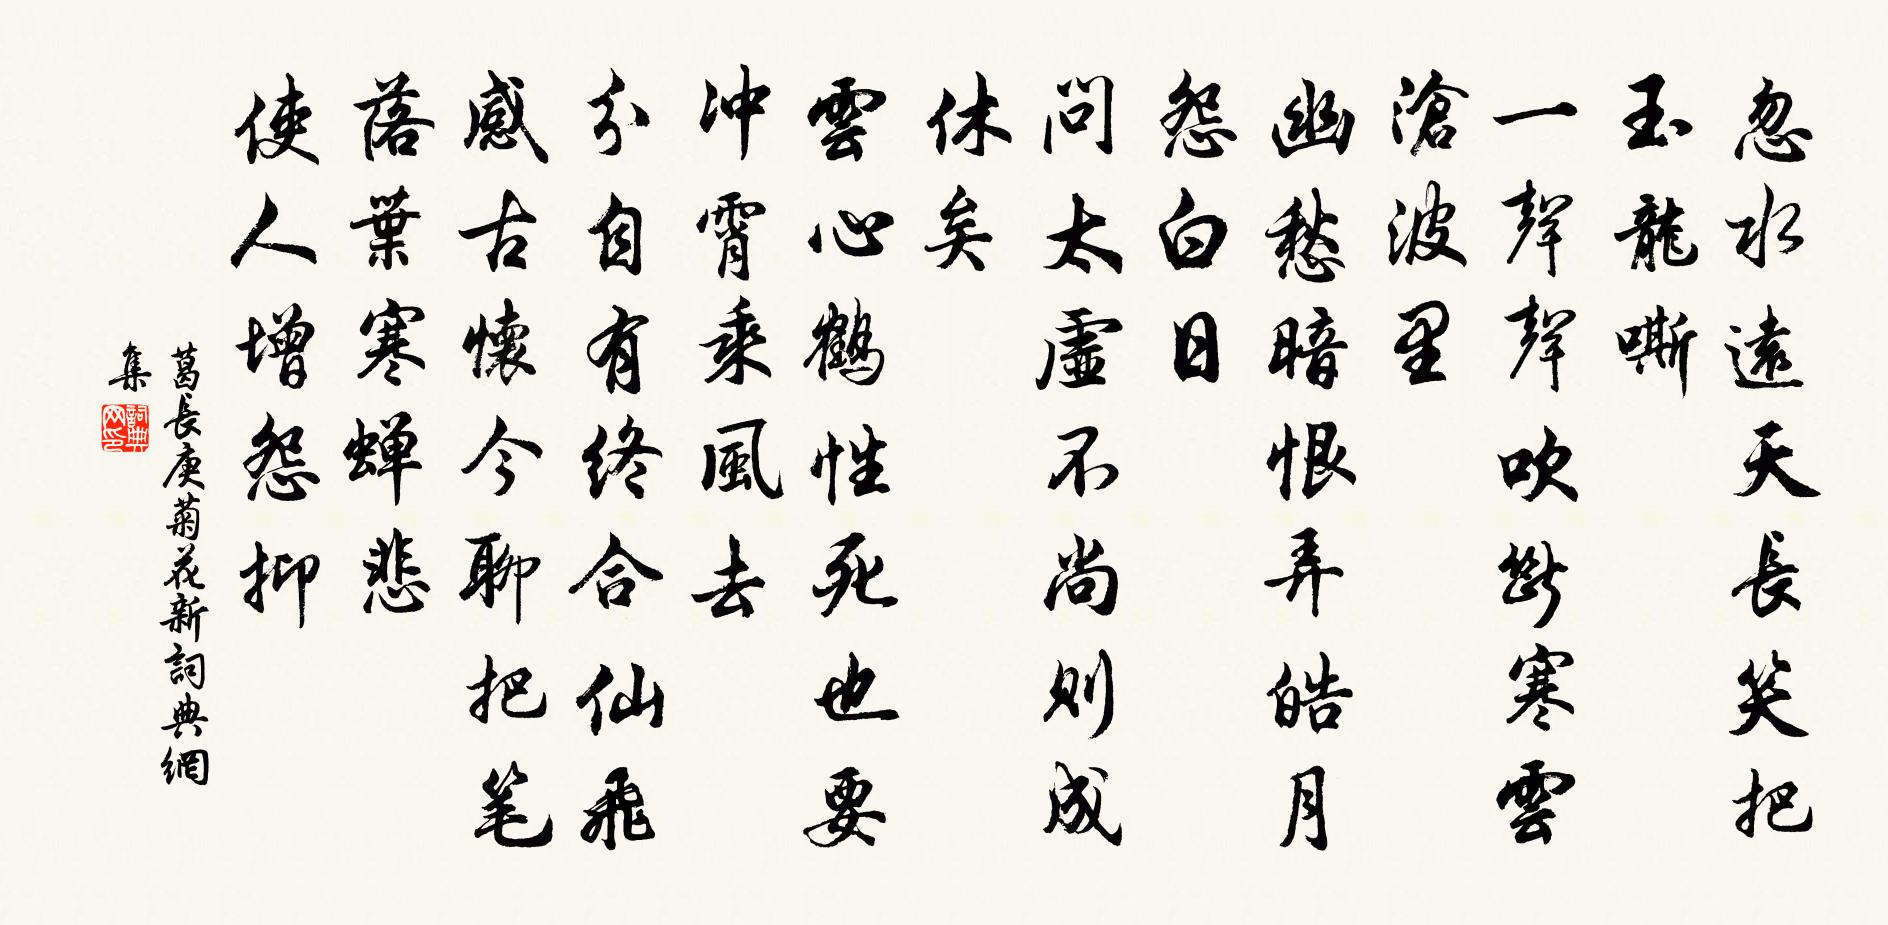 忽水遠天長笑把
玉龍嘶
一聲聲吹斷寒雲
滄波里
幽愁暗恨弄皓月
怨白日
問太虛不尚則成
休矣
雲心鶴性死也要
冲霄乘風去
分自有終合仙飛
感古懷今聊把笔
落葉寒蝉悲
使人增怨抑
葛長庚菊花新詞典網
集
詞典网印